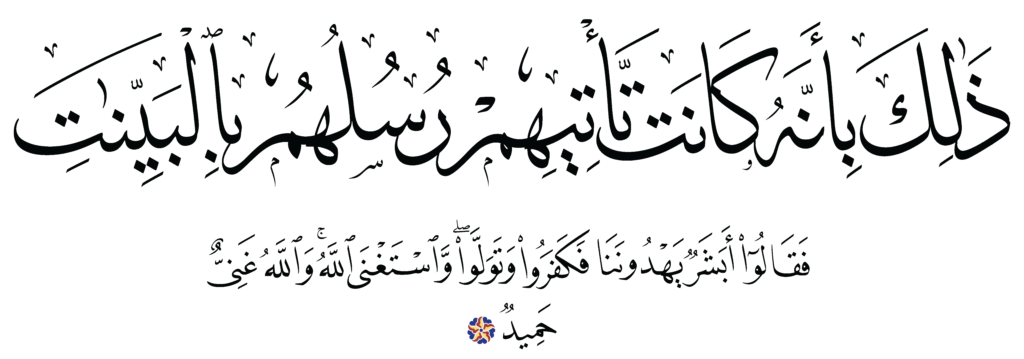 ذَٰلِكَ بِأَنَّهُۥ كَانَت تَّأۡتِيهِمۡ رُسُلُهُم بِٱلۡبَيِّنَٰتِ
فَقَالُوٓاْ أَبَشَرٞ يَهۡدُونَنَا فَكَفَرُواْ وَتَوَلَّواْۖ وَّٱسۡتَغۡنَى ٱللَّهُۚ وَٱللَّهُ غَنِيٌّ
حَمِيدٞ